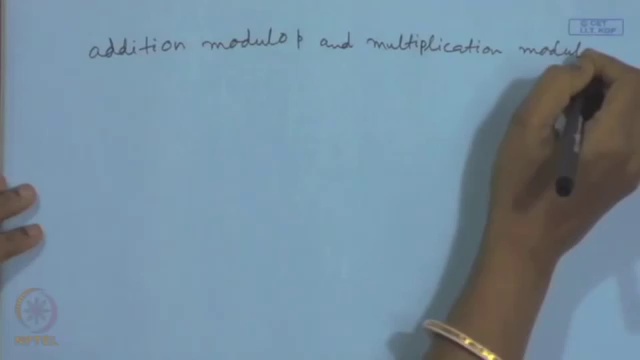 addition modulo p and multiplication modulo
© CET
I.I.T. KGP
NPTEL